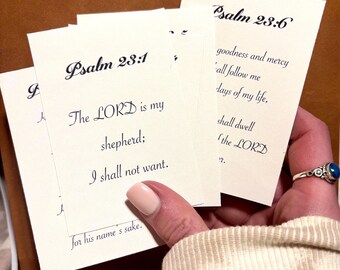 Psalm 23:1
The LORD is my
shepherd;
I shall not want.
Psalm 23:6
goodness and mercy
shall follow me
days of my life,
shall dwell
of the LORD
for his name's sake.